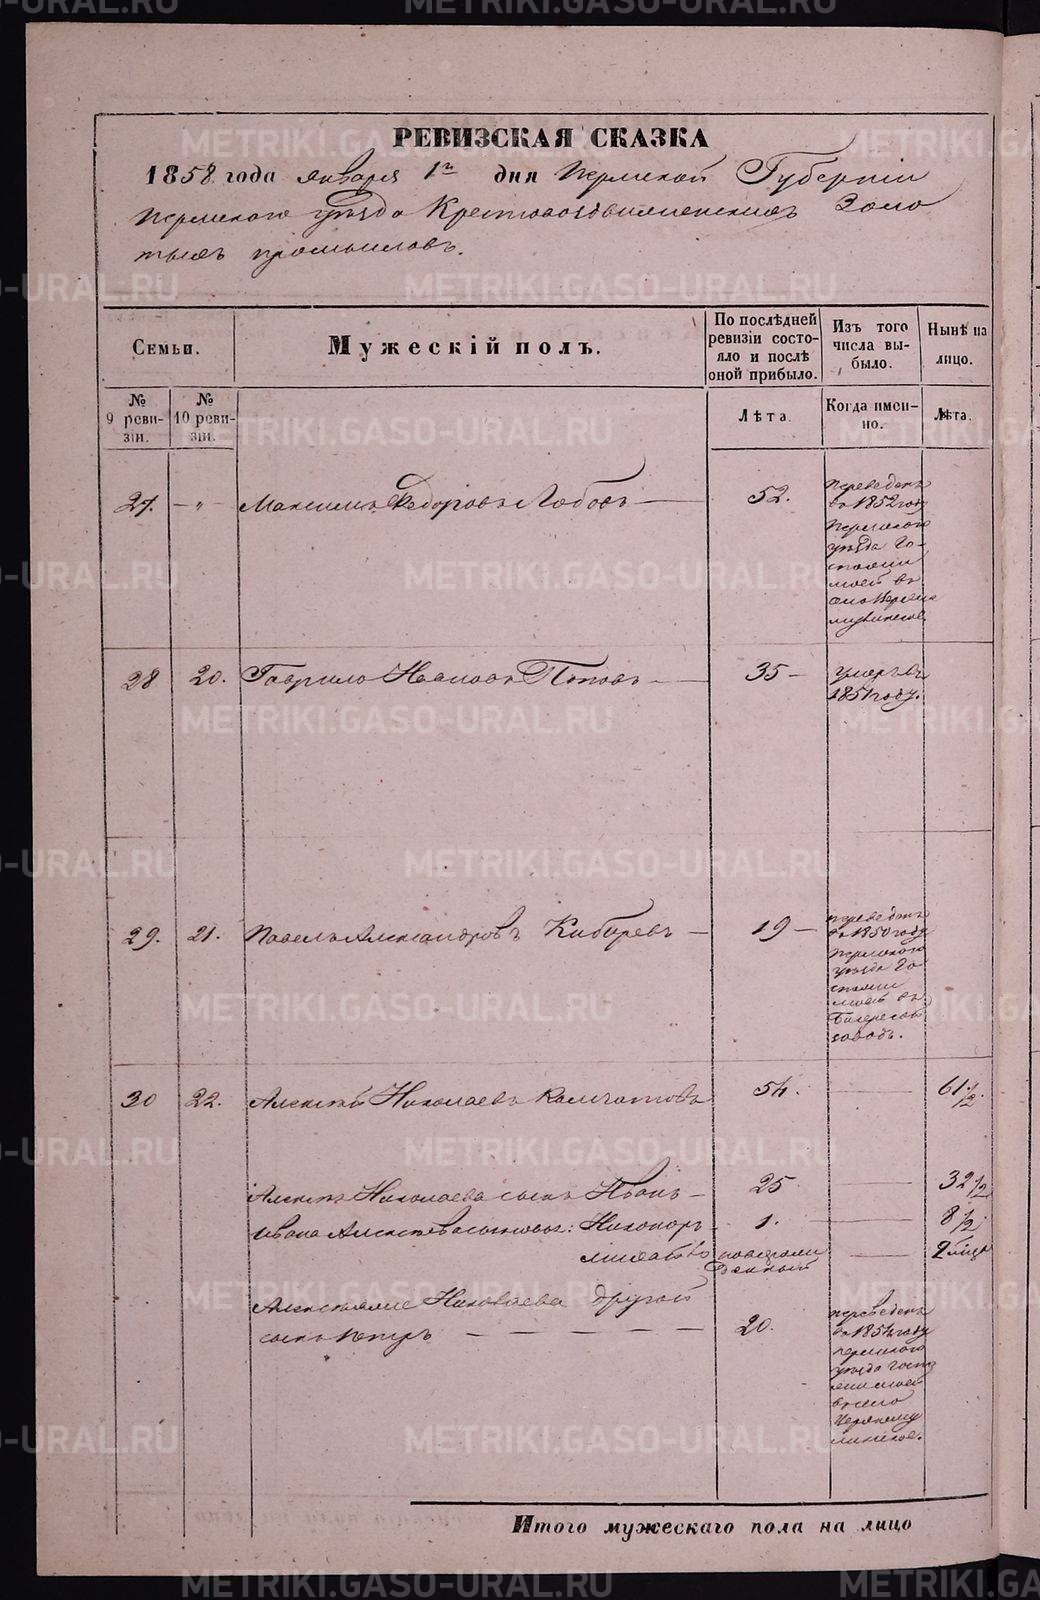 РЕВИЗСКАЯ СКАЗКА
1858 года января 1го дня Пермской Губернiи
Пермского уѣзда Крестовоздвиженскихъ Золо
тыхъ промысловъ.
Семьи.
Мужескiй полъ.
По послѣдней ревизiи состо-
яло и послѣ
оной прибыло.
Изъ того
числа вы-
было.
Нынѣ на
лицо.
№
9 реви-
зiи.
№
10 реви-
зiи.
Лѣта.
Когда имен-
но.
Лѣта.
27. — „ — Максимъ Федоровъ Лобовъ — 52.
переведенъ
въ 1852 году
Пермского
уѣзда Го-
спожи
моей въ
село
28 20. Гаврило Ивановъ Поповъ — 35 —
умеръ въ
1851 году.
29. 21. Павелъ Александровъ Кибиревъ — 19 —
переведенъ
въ 1850 году
Пермского
уѣзда Го
спожи
моей въ
Бисерской
заводъ.
30 22. Алексѣй Николаевъ Камчатовъ 54. — 61 1/2.
Алексѣя Николаева сынъ Иванъ — 25 — 32 1/2
Ивана Алексѣева сыновья: Никоноръ — 1. — 8 1/2
послѣ ревизiи рожденный — 2
Алексѣя же Николаева другой
сынъ Петръ — — — — — 20.
переведенъ
въ 1854 году
Пермского
уѣзда Госпо
жи моей
въ село
Итого мужескаго пола на лицо
METRIKI.GASO-URAL.RU